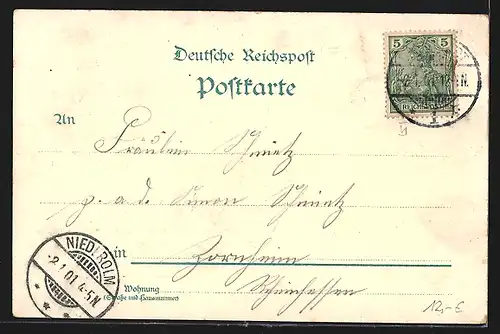 Deutsche Reichspost
Postkarte
5 5
An Fräulein Schmitz
p. a. d. Simon Schmitz
in Zornheim
Rheinhessen
Wohnung
(Straße und Hausnummer)
NIED. OLM
2.1.01. 4-5 N
12,-€